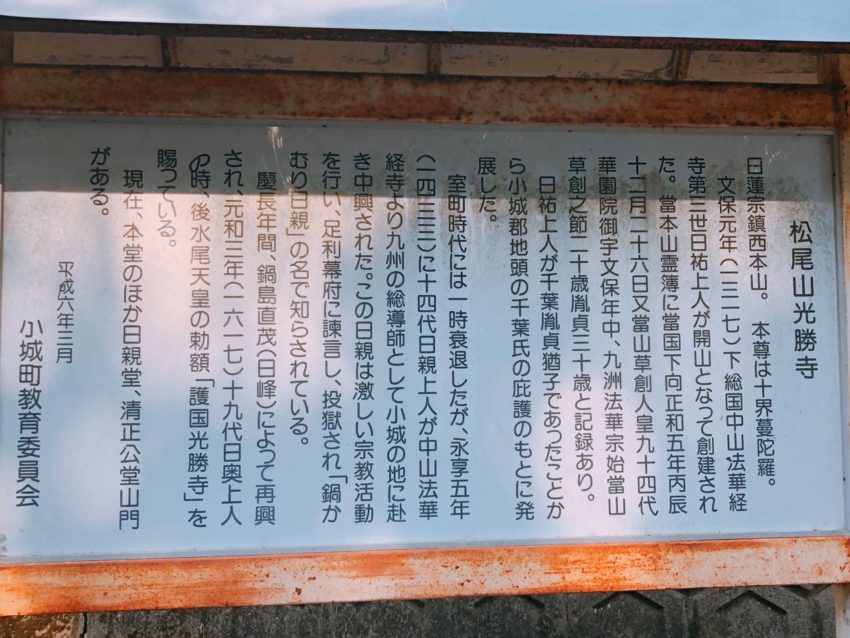 松尾山光勝寺
日蓮宗鎮西本山。 本尊は十界蔓陀羅。
文保元年(一三一七)下総国中山法華経
寺第三世日祐上人が開山となって創建され
た。當本山霊簿に當国下向正和五年丙辰
十二月二十六日又當山草創人皇九十四代
華園院御宇文保年中、九洲法華宗始當山
草創之節二十歳胤貞三十歳と記録あり。
日祐上人が千葉胤貞猶子であったことか
ら小城郡地頭の千葉氏の庇護のもとに発
展した。
室町時代には一時衰退したが、永享五年
(一四三三)に十四代日親上人が中山法華
経寺より九州の総導師として小城の地に赴
き中興された。この日親は激しい宗教活動
を行い、足利幕府に諫言し、投獄され「鍋か
むり日親」の名で知らされている。
慶長年間、鍋島直茂(日峰)によって再興
され、元和三年(一六一七)十九代日奥上人
の時、後水尾天皇の勅額「護国光勝寺」を
賜っている。
現在、本堂のほか日親堂、清正公堂山門
がある。
平成六年三月
小城町教育委員会